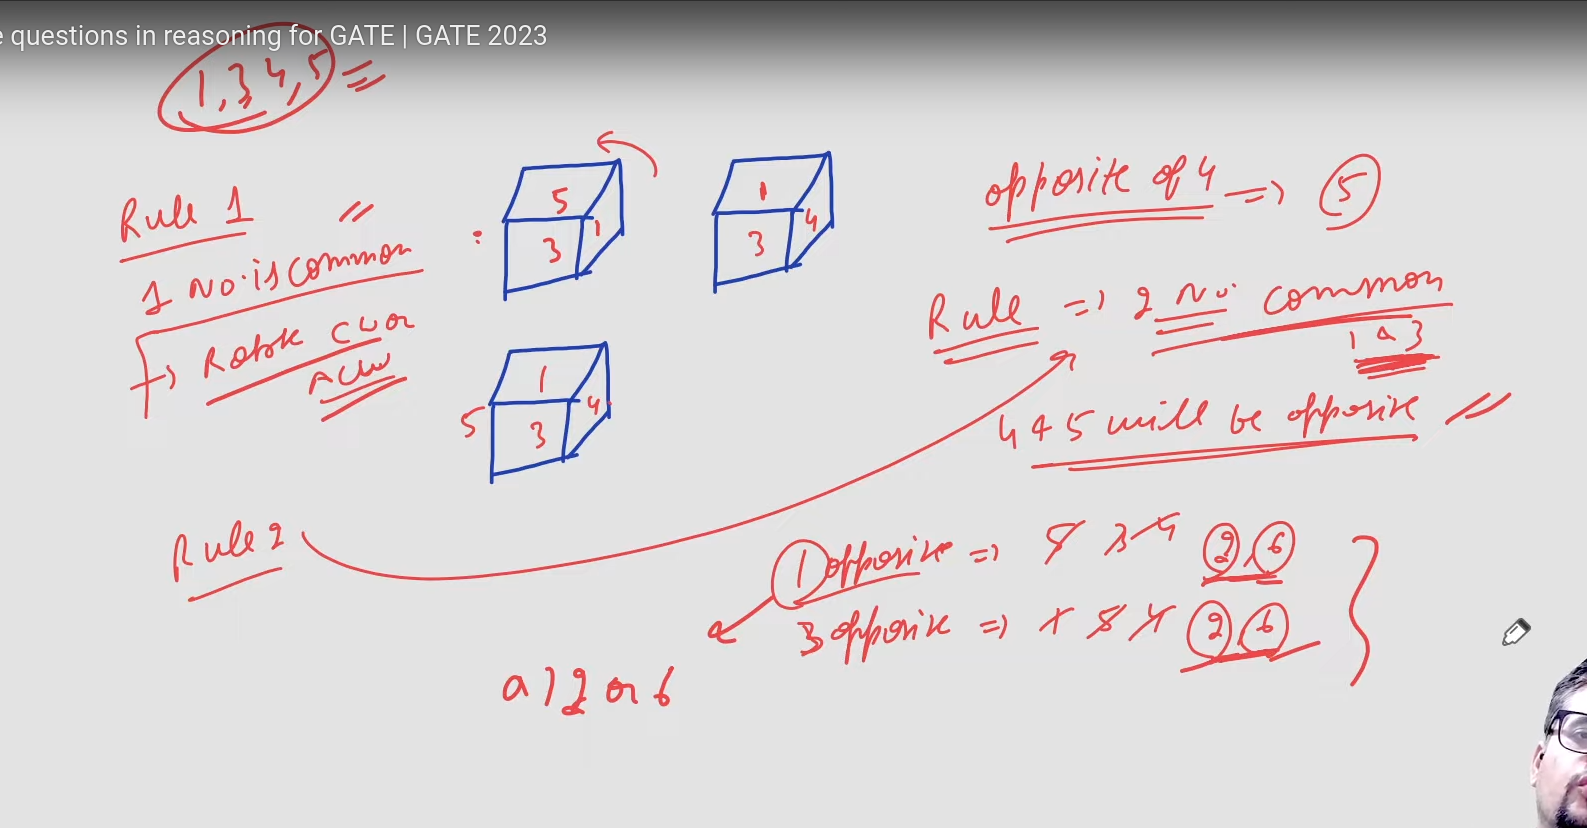 e questions in reasoning for GATE | GATE 2023
1, 3, 4, 5 =
Rule 1 //
1 No. is common
→ Rotate CW or
ACW
5
3 1
1
3 4
1
5 3 4
opposite of 4 => 5
Rule => 2 No. common
1 & 3
4 & 5 will be opposite //
Rule 2
1 opposite => 5 3 4 2, 6
3 opposite => 1 5 4 2, 6
a) 2 or 6